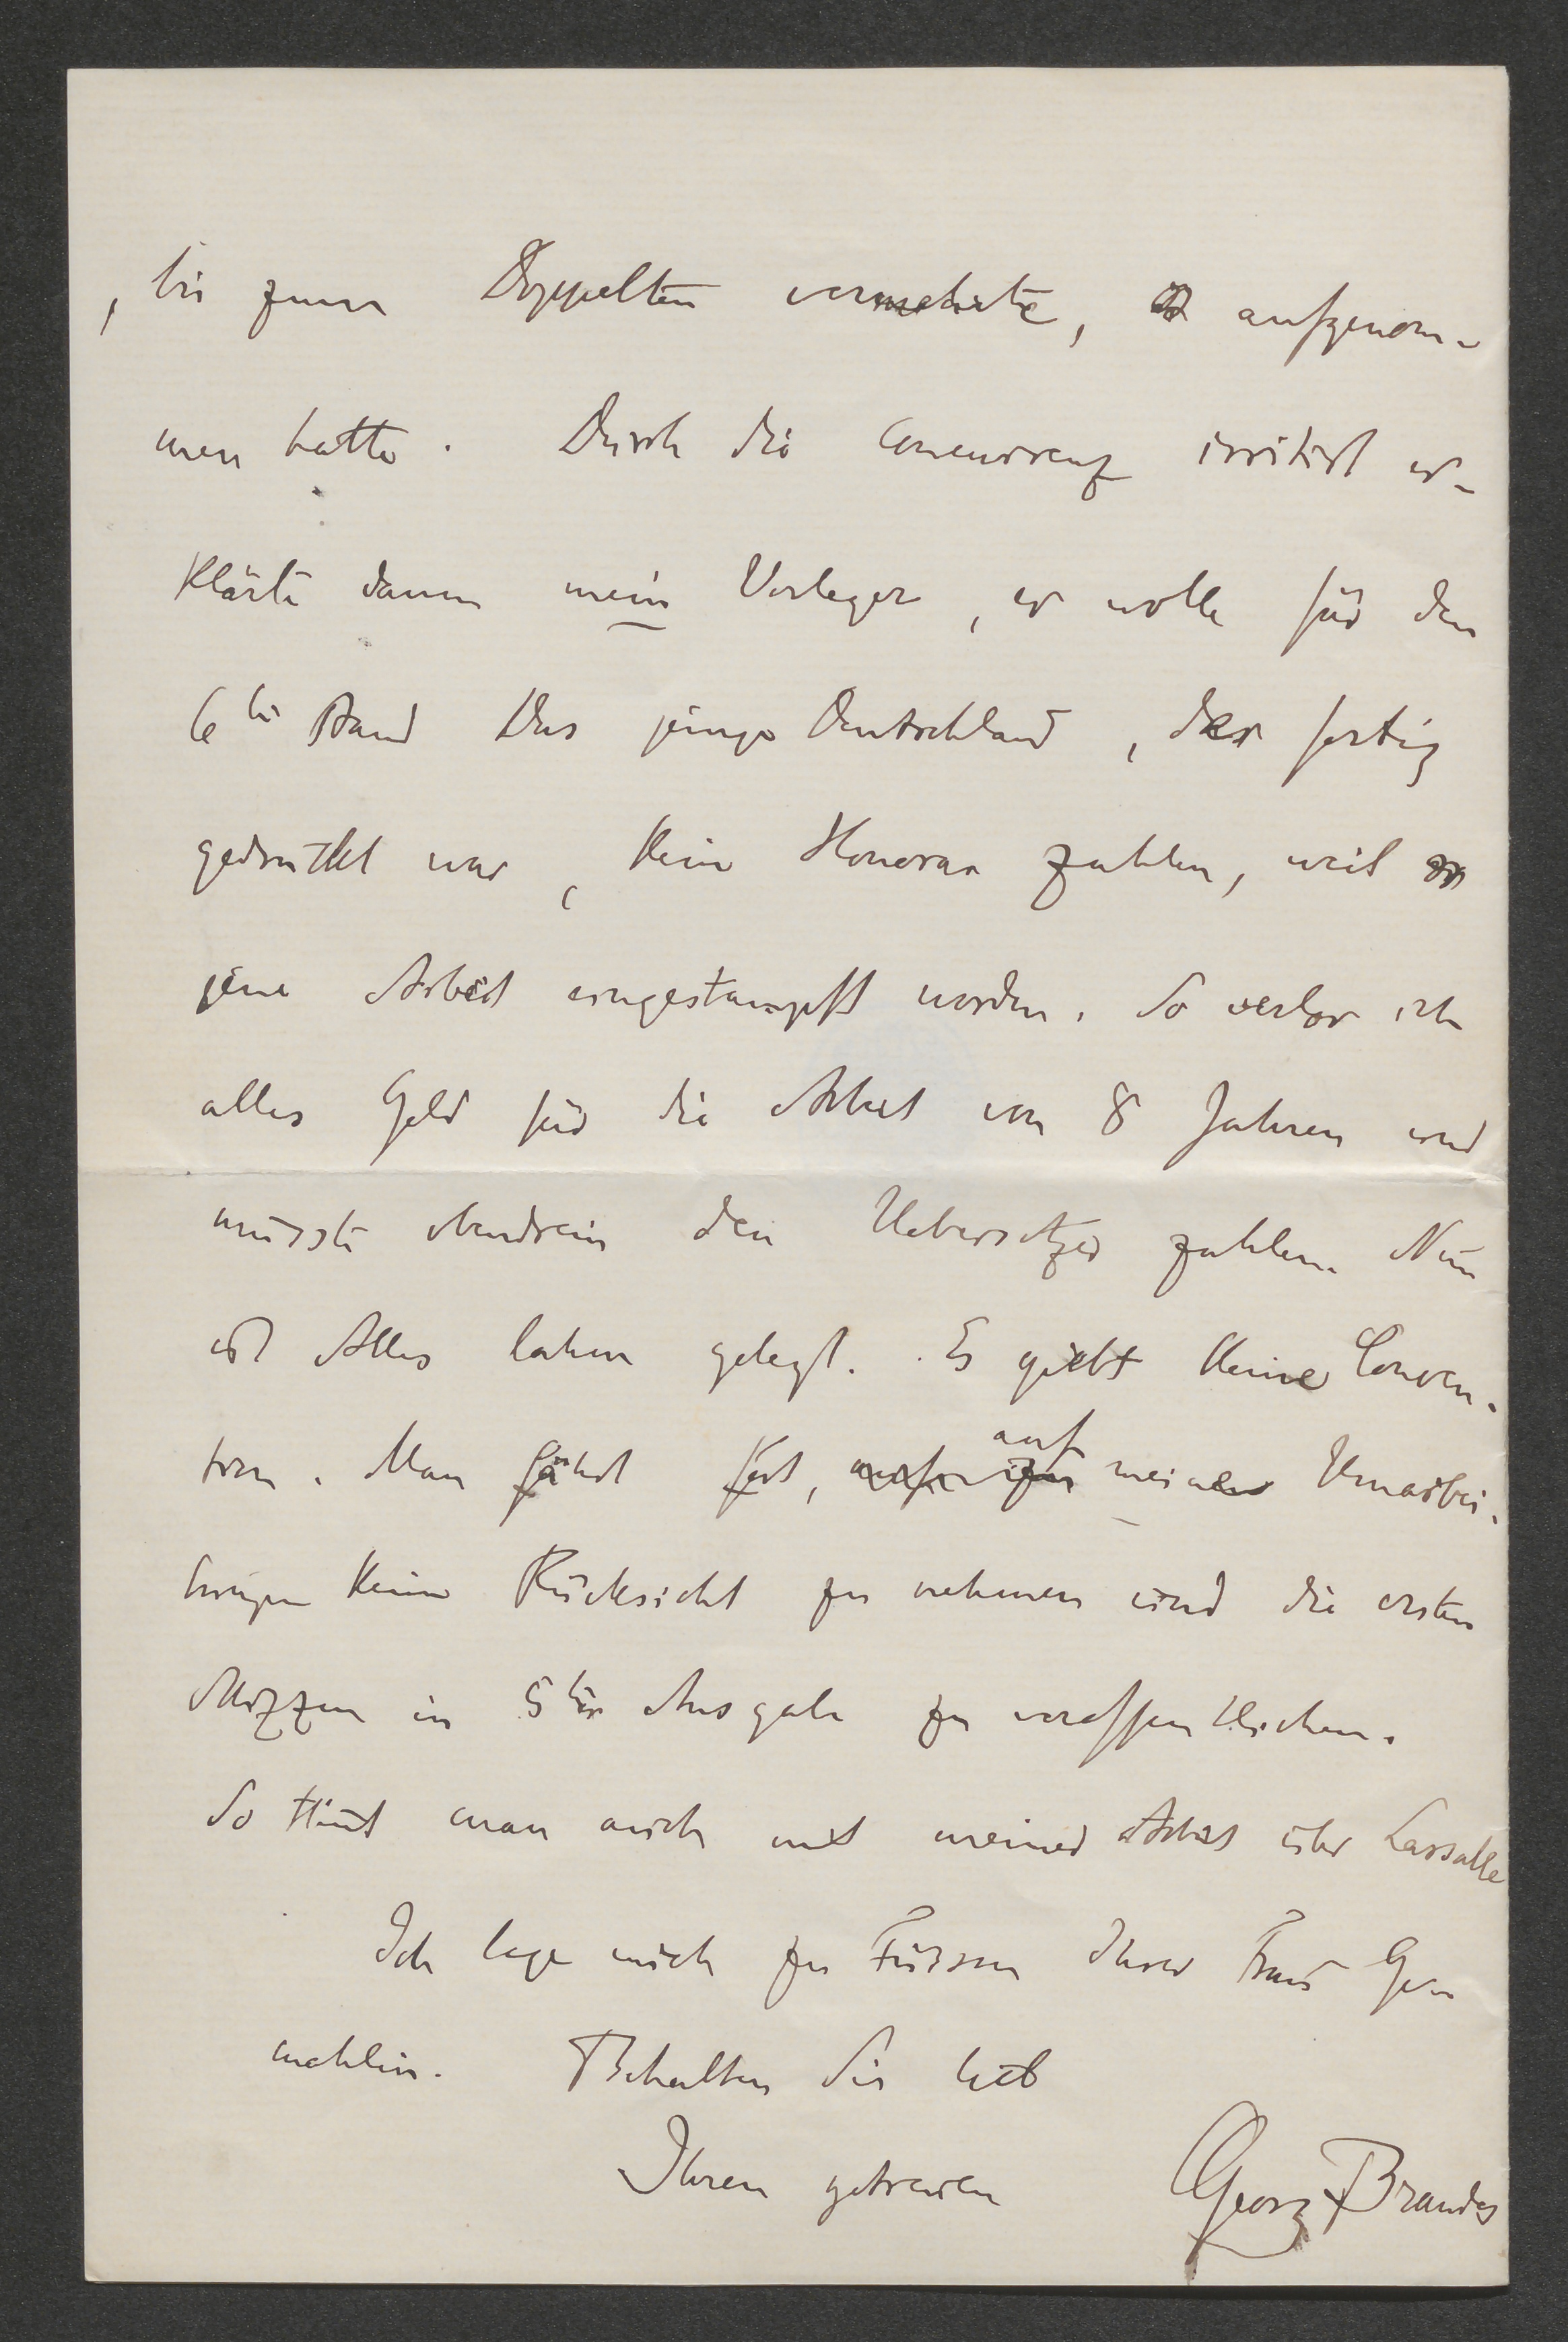 , bis zum Doppelten vermehrte, aufgenom-
men hatte. Durch die Concurrenz irritirt er-
klärte dann mein Verleger, er wolle für den
6ten Band Das junge Deutschland, der fertig
gedruckt war, kein Honorar zahlen, weil
jene Arbeit eingestampft worden. So verlor ich
alles Geld für die Arbeit von 8 Jahren und
musste obendrein den Uebersetzer zahlen. Nun
ist Alles lahm gelegt. Es giebt keine Conven-
tion. Man fährt fort, auf meine Umarbei-
tungen keine Rücksicht zu nehmen und die ersten
Skizzen in 5ter Ausgabe zu veröffentlichen.
So thut man auch mit meiner Arbeit über Lassalle
Ich lege mich zu Füssen Ihrer Frau Ge-
mahlin. Behalten Sie lieb
Ihren getreuen Georg Brandes